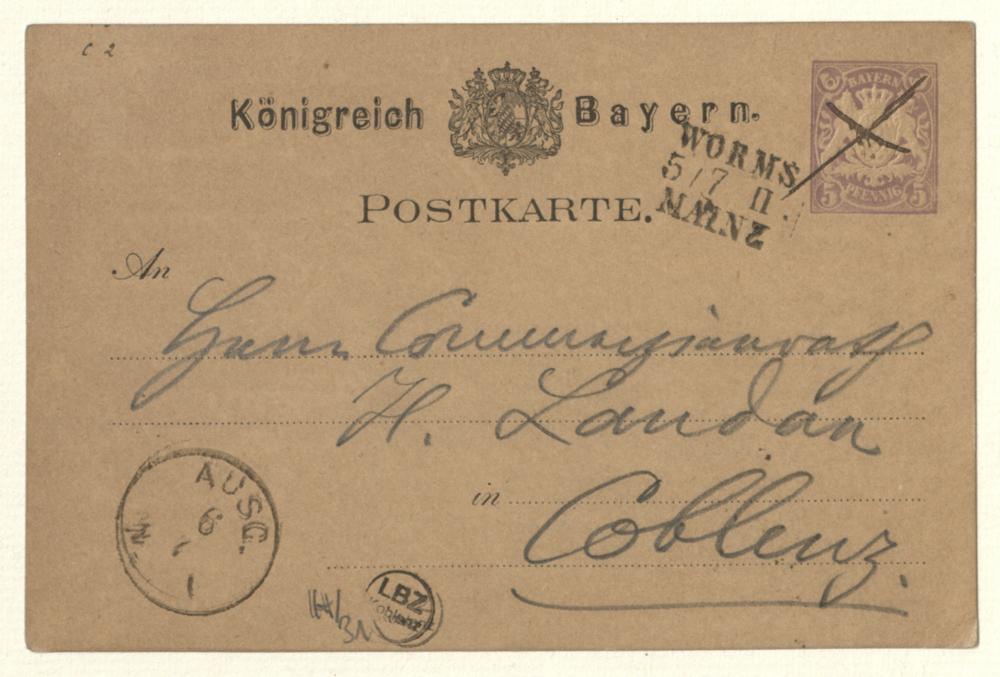 c 2
Königreich Bayern.
BAYERN
5 PFENNIG 5
WORMS
5/7 II
MAINZ
POSTKARTE.
An
Herrn Commerzienrath
H. Landau
in Coblenz.
AUSG.
6
7
1
N.
LBZ
Koblenz